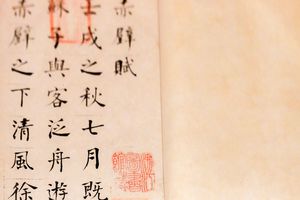 赤壁賦
壬戌之秋七月既
蘇子與客泛舟遊
赤壁之下清風徐